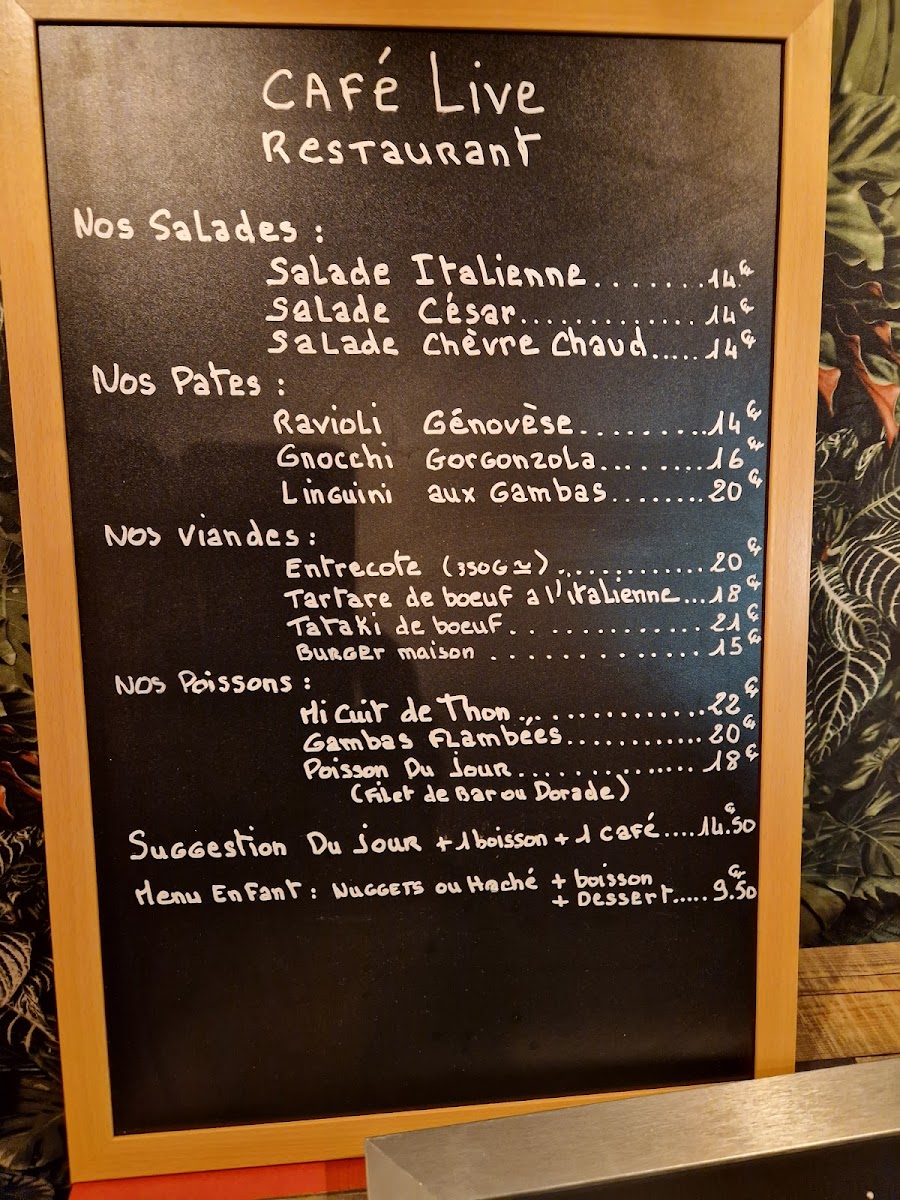 CAFé Live
Restaurant
Nos Salades :
Salade Italienne........14.€
Salade César.............14€
Salade Chèvre Chaud.....14€
Nos Pates :
Ravioli Génovèse.........14€
Gnocchi Gorgonzola.......16€
Linguini aux Gambas........20€
Nos Viandes :
Entrecote (350G≃)............20€
Tartare de boeuf a l'italienne...18€
Tataki de boeuf..............21€
Burger maison ..............15€
Nos Poissons :
Mi Cuit de Thon...............22€
Gambas Flambées............20€
Poisson Du jour..............18€
(Filet de Bar ou Dorade)
Suggestion Du jour +1 boisson + 1 café....14.50€
Menu Enfant : Nuggets ou Haché + boisson
+ Dessert.....9.50€